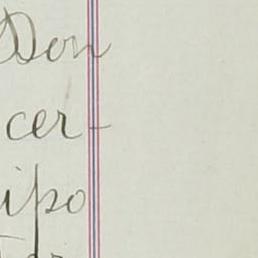 Don
cer-
ipo